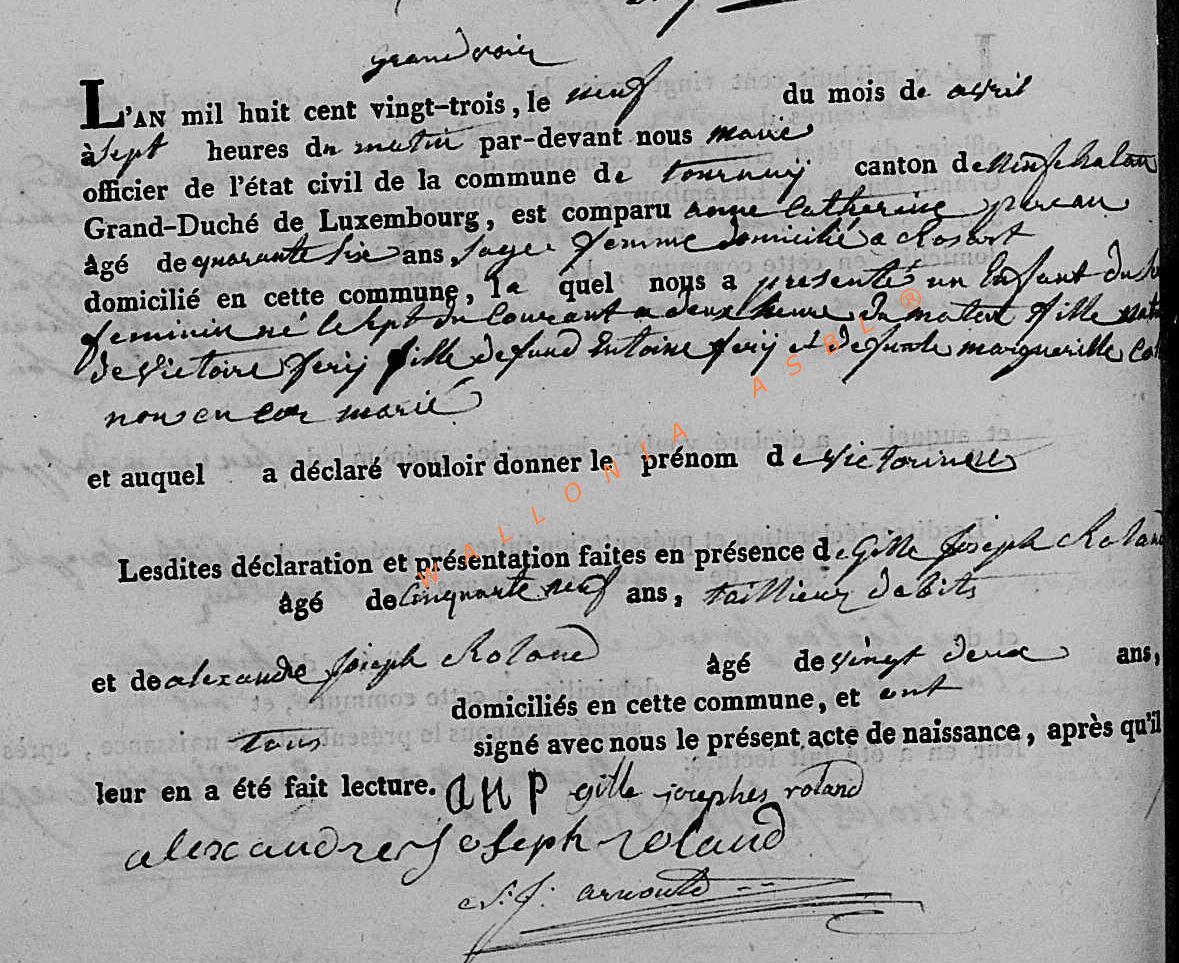 Grandvoir
L'AN mil huit cent vingt-trois, le neuf du mois de avril
à sept heures du matin par-devant nous maire
officier de l'état civil de la commune de tournay canton de neufchatau
Grand-Duché de Luxembourg, est comparu anne Catherine pureau
âgé de quarante six ans, sage femme domicilié a Rosart
domicilié en cette commune, la quel nous a presenté un Enfant du
feminin né le sept du Courant a deux heure du matin fille
de victoire feri fille defund Entoine feri et defunde margueritte
non en cor marié
et auquel a déclaré vouloir donner le prénom de victorine
Lesdites déclaration et présentation faites en présence de Gille Joseph Roland
âgé de Cinquante neuf ans, taillieur dabits
et de alexandre Joseph Roland âgé de vingt deux ans,
domiciliés en cette commune, et ont
tous signé avec nous le présent acte de naissance, après qu'il
leur en a été fait lecture. a H P gille josephes roland
alexandre Joseph roland
arnould
WALLONIA ASBL ®